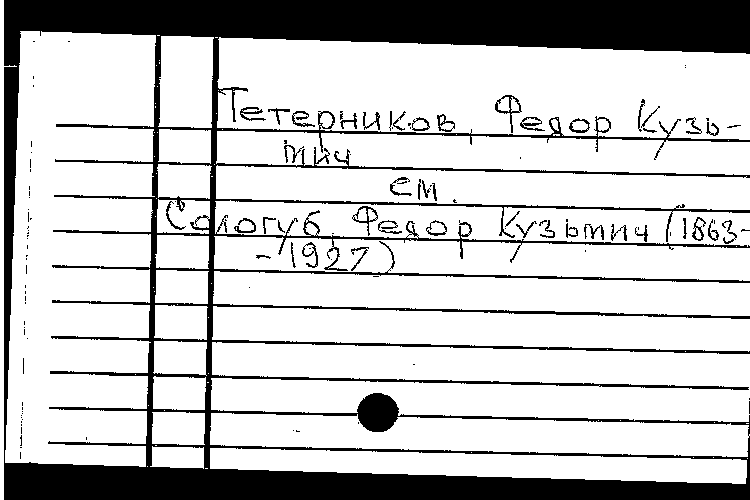 Тетерников, Федор Кузь-
мич
см.
Сологуб, Федор Кузьмич (1863-
-1927)